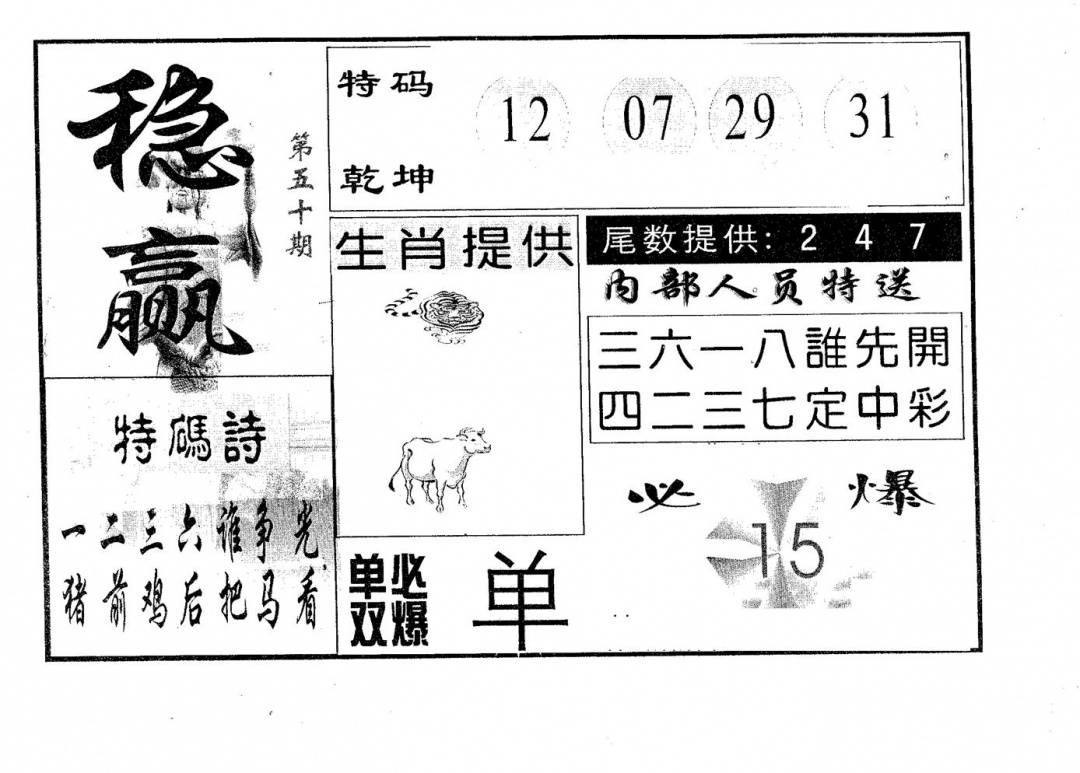 稳赢
第五十期
特码
乾坤
12 07 29 31
生肖提供
尾数提供: 2 4 7
内部人员特送
三六一八誰先開
四二三七定中彩
特碼詩
一二三六谁争光
猪前鸡后把马看
单双
必爆
单
必爆
15